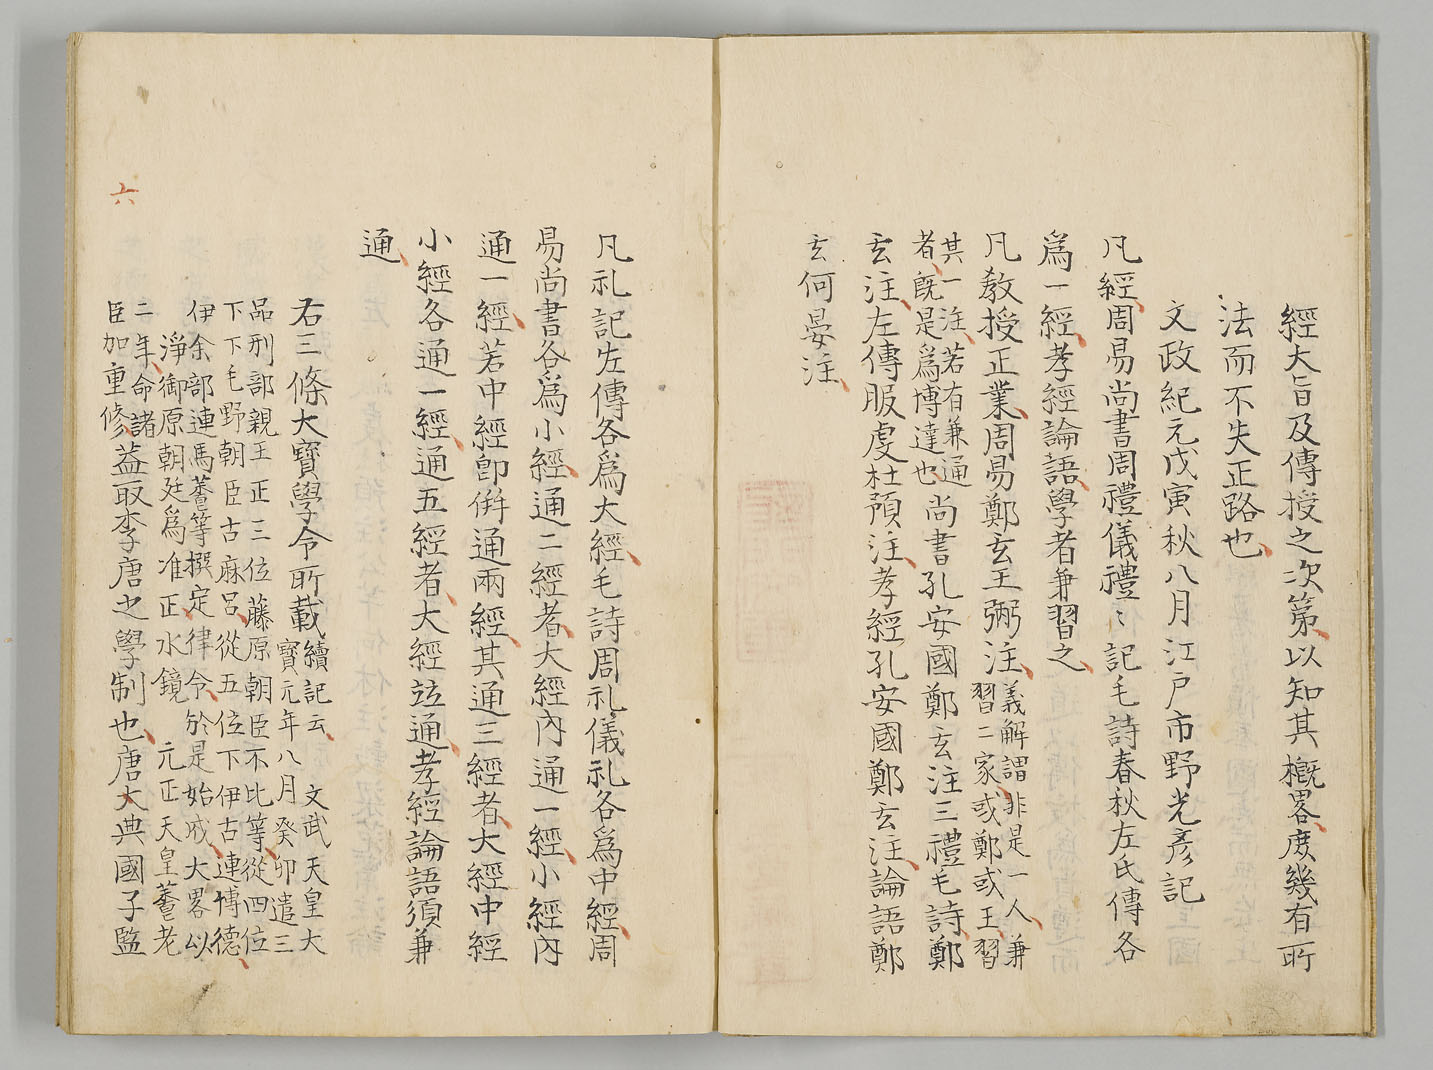 經大旨及傳授之次第以知其概畧庶幾有所
法而不失正路也
文政紀元戊寅秋八月江戸市野光彦記
凡經周易尚書周禮儀禮〻記毛詩春秋左氏傳各
爲一經孝經論語學者兼習之
凡教授正業周易鄭玄王弼注義解謂非是一人兼
習二家或鄭或王習
其一注若有兼通
者既是爲博達也尚書孔安國鄭玄注三禮毛詩鄭
玄注左傳服虔杜預注孝經孔安國鄭玄注論語鄭
玄何晏注
凡礼記左傳各爲大經毛詩周礼儀礼各爲中經周
易尚書各爲小經通二經者大經内通一經小經内
通一經若中經即併通兩經其通三經者大經中經
小經各通一經通五經者大經竝通孝經論語須兼
通
右三條大寶學令所載續記云 文武天皇大
寳元年八月癸卯遣三
品刑部親王正三位藤原朝臣不比等從四位
下下毛野朝臣古麻呂從五位下伊古連博德
伊余部連馬養等撰定律令於是始成大畧以
淨御原朝廷爲准正水鏡 元正天皇養老
二年命諸
臣加重修蓋取李唐之學制也唐大典國子監
六